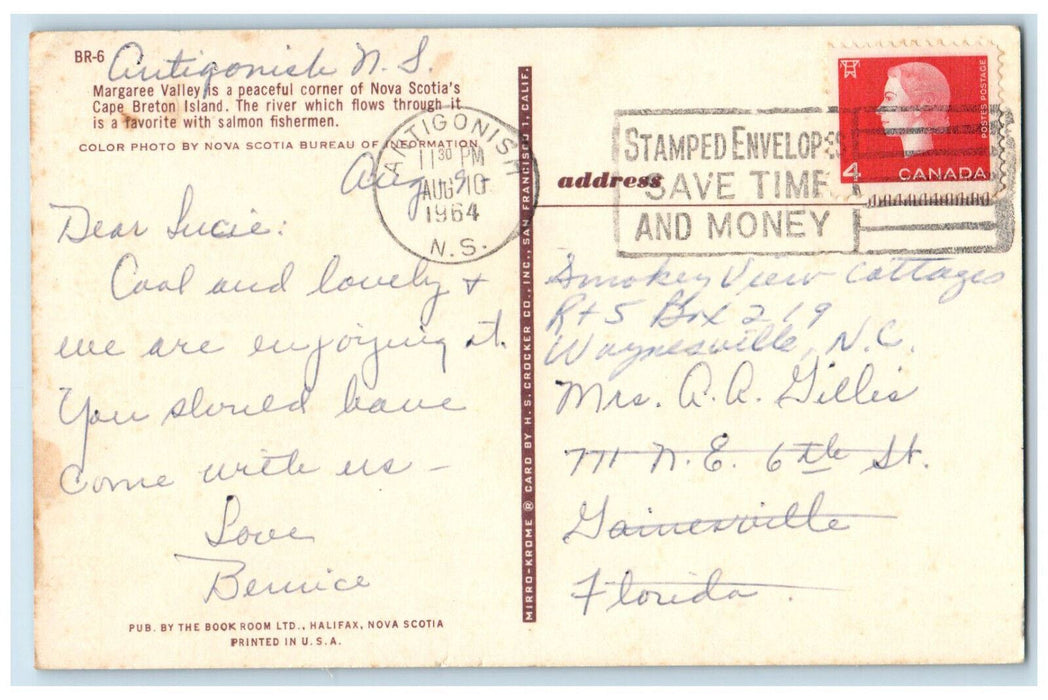 BR-6
Antigonish N.S.
Margaree Valley is a peaceful corner of Nova Scotia's
Cape Breton Island. The river which flows through it
is a favorite with salmon fishermen.
COLOR PHOTO BY NOVA SCOTIA BUREAU OF INFORMATION
Aug 9
Dear Lucie:
Cool and lovely +
we are enjoying it.
You should have
come with us -
Love
Bernice
PUB. BY THE BOOK ROOM LTD., HALIFAX, NOVA SCOTIA
PRINTED IN U.S.A.
ANTIGONISH
11 30 PM
AUG 10
1964
N.S.
MIRRO-KROME ® CARD BY H. S. CROCKER CO., INC., SAN FRANCISCO 1, CALIF.
STAMPED ENVELOPES
SAVE TIME
AND MONEY
POSTES POSTAGE
4 CANADA
address
Smokey View Cottages
Rt 5 Box 219
Waynesville, N.C.
Mrs. A. A. Gillis
711 N.E. 6th St.
Gainesville
Florida.